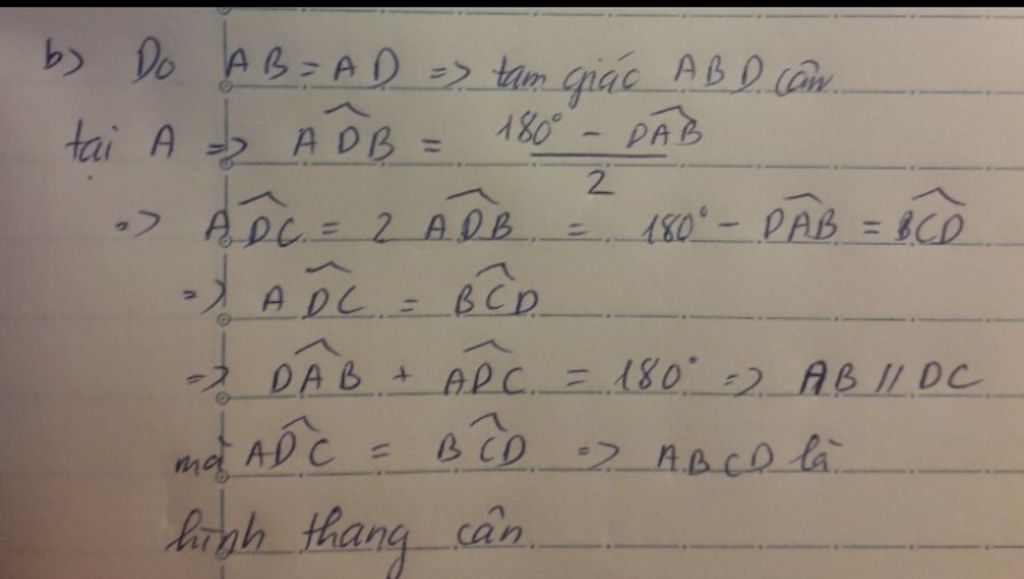 b) Do AB = AD => tam giác ABD cân
tại A => \widehat{ADB} = \frac{180° - \widehat{DAB}}{2}
=> \widehat{ADC} = 2 \widehat{ADB} = 180° - \widehat{DAB} = \widehat{BCD}
=> \widehat{ADC} = \widehat{BCD}
=> \widehat{DAB} + \widehat{ADC} = 180° => AB // DC
mà \widehat{ADC} = \widehat{BCD} => ABCD là
hình thang cân